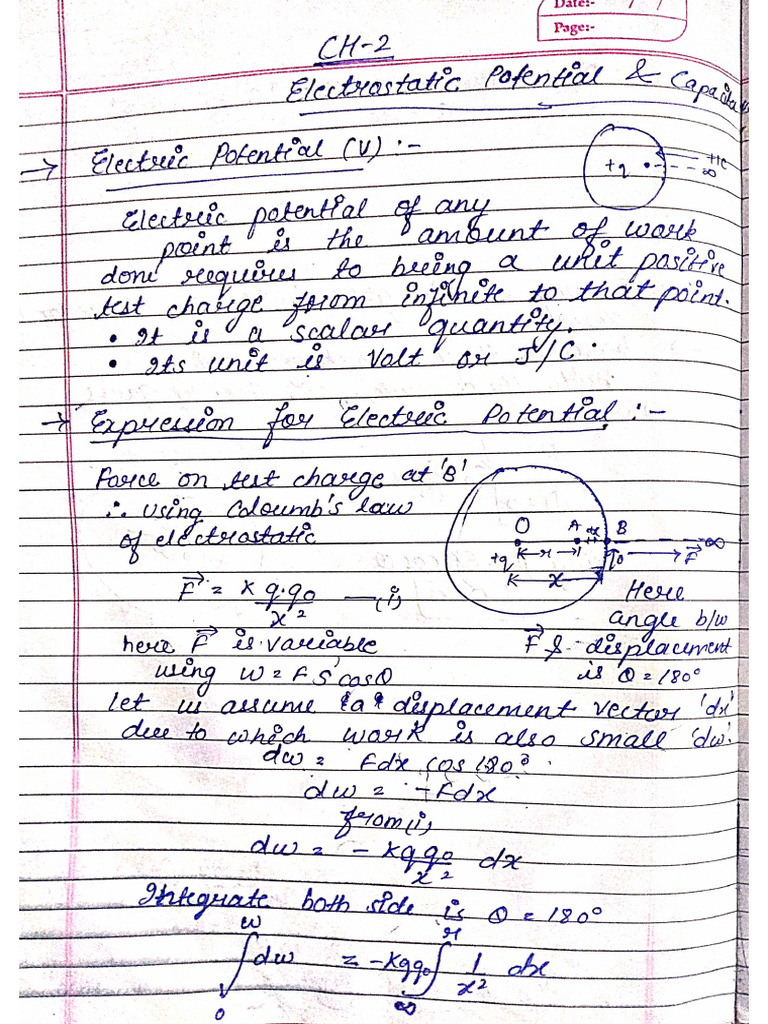 Date:-
Page:-
CH-2
Electrostatic Potential & Capacita
→ Electric Potential (V) :-
+q
+1C
∞
Electric potential of any
point is the amount of work
done requires to being a unit positive
test charge from infinite to that point.
• It is a scalar quantity.
• Its unit is Volt or J/C.
→ Expression for Electric Potential :-
Force on test charge at 'B'
∴ using Coloumb's law
of electrostatic
O A dx B ∞
+q r F⃗
x
F⃗ = K q.q₀/x² —(i)
Here
angle b/w
here F⃗ is variable
F⃗ & displacement
using W = F S cosθ
is θ = 180°
Let us assume 'a' displacement vector 'dx'
due to which work is also small 'dw'.
dw = Fdx cos 180°
dw = -Fdx
from (i)
dw = - Kqq₀/x² dx
Integrate both side is θ = 180°
∫₀ᵂ dw = -Kqq₀ ∫∞ʳ 1/x² dx